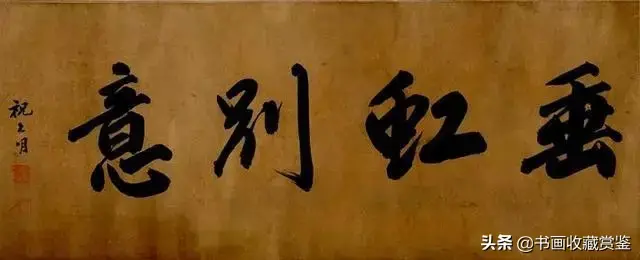 垂虹别意
祝允明
头条 @书画收藏赏鉴